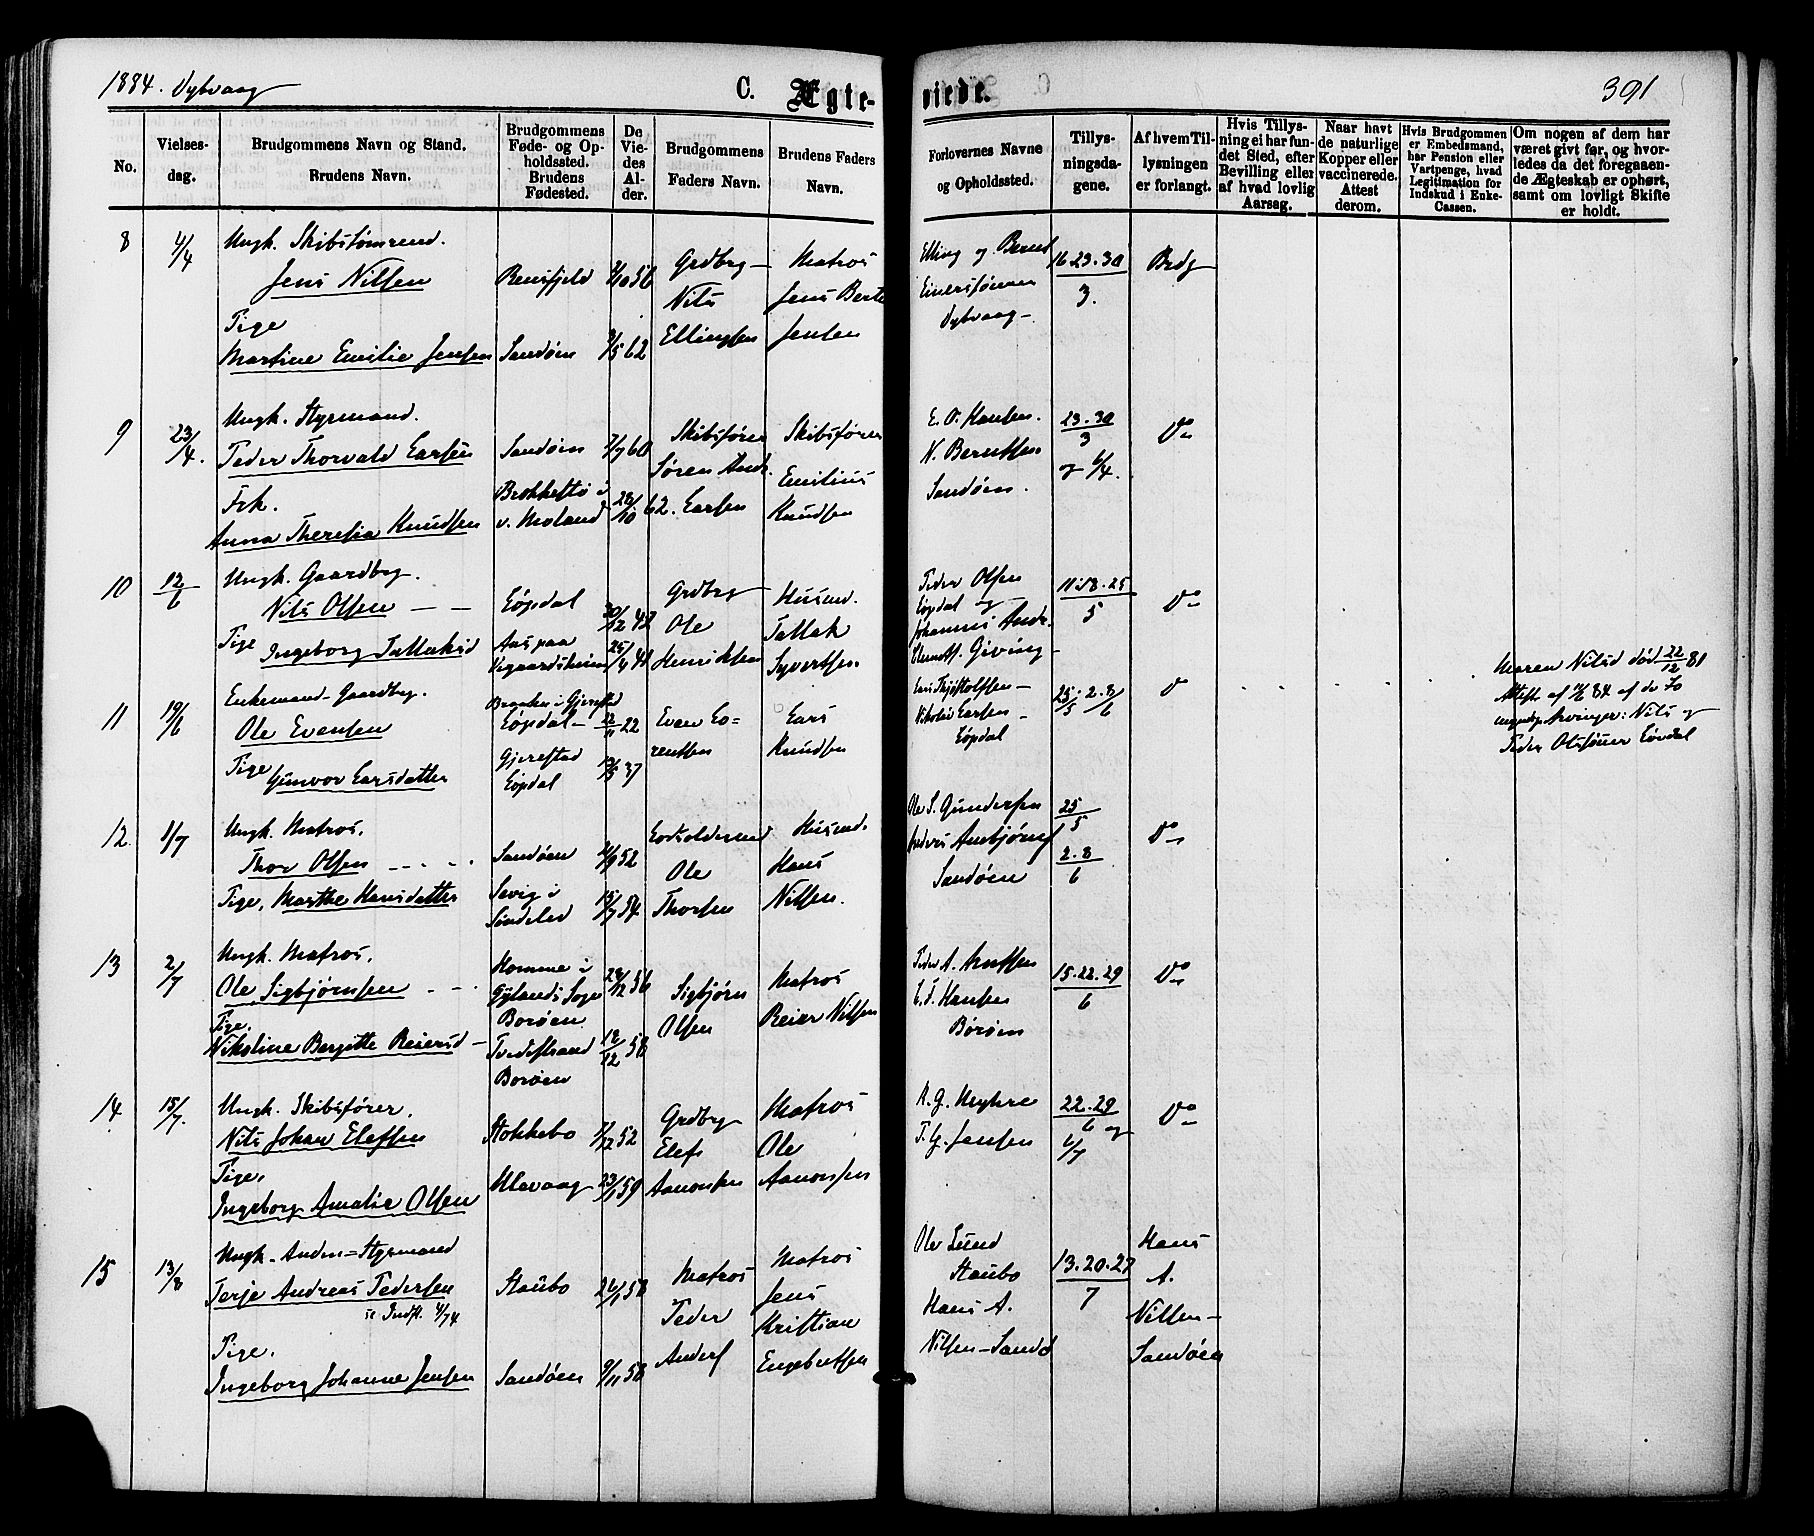 1884. Dybvaag
C. Ægte-
viede.
391
No.
Vielses-
dag.
Brudgommens Navn og Stand.
Brudens Navn.
Brudgommens
Føde- og Op-
holdssted.
Brudens
Fødested.
De
Vie-
des
Al-
der.
Brudgommens
Faders Navn.
Brudens Faders
Navn.
Forlovernes Navne
og Opholdssted.
Tillys-
ningsda-
gene.
Af hvem Til-
lysningen
er forlangt.
Hvis Tillys-
ning ei har fun-
det Sted, efter
Bevilling eller
af hvad lovlig
Aarsag.
Naar havt
de naturlige
Kopper eller
vaccinerede.
Attest
derom.
Hvis Brudgommen
er Embedsmand,
har Pension eller
Vartpenge, hvad
Legitimation for
Indskud i Enke-
Cassen.
Om nogen af dem har
været givt før, og hvor-
ledes da det foregaaen-
de Ægteskab er ophørt,
samt om lovligt Skifte
er holdt.
8
4/4
Ungk. Skibstømrend.
Jens Nilsen
Pige
Martine Emilie Jensen
Sandøen
5 62
Grdbrg
Nils
Ellingsen
Matros
Jens Berte
Jensen
Elling og Bernt
Einersønner
Dybvaag
16 23. 30
3.
Brdg
9
23/4.
Ungk. Styrmand.
Peder Thorvald Larsen
Frk.
Anna Theresia Knudsen
Sandøen
7/7 60
Brækkestø i
v. Moland
28/10 62.
Skibsfører
Søren Andr.
Larsen
Skibsfører
Emilius
Knudsen
E. O. Hansen.
N. Berntsen
Sandøen.
23. 30
3
og 6/4.
Do
10
12/6
Ungk. Gaardbrg.
Nils Olsen
Pige Ingeborg Tallaksd
Løvdal
Aas paa
Vegaardsheien
30/12 42
25/4 41
Grdbrg
Ole
Henriksen
Husmd.
Tallak
Syvertsen
Peder Olsen
Løvdal og
Johannes Andr.
Giving
11. 18. 25
5
Do
11
19/6
Enkemand Gaardbrg.
Ole Evensen
Pige
Gunvor Larsdatter
i Gjerestad
Løvdal
22/11 22
Gjerestad
Løvdal
37
Even Lo=
rentsen
Lars
Knudsen
Lars Thjøstolfsen
Nikolai Larsen
Løvdal
25/5. 2. 8/6
Do
Maren Nilsd død 22/12 81
Attest af 84 af de to
myndige Arvinger: Nils og
Peder Olssønner Løvdal
12.
1/7
Ungk. Matros.
Thor Olsen
Pige, Marthe Hansdatter
Sandøen
9 52
Sevig i
Søndeled
15/7 54
Ole
Thorsen
Husmd.
Hans
Nilsen.
Ole S. Gundersen
Anders Ambjørns
Sandøen
25
5
2. 8
6
Do
13
2/7
Ungk. Matros.
Ole Sigbjørnsen
Pige.
Nikoline Bergitte Reiersd
Homme i
Gylands Sogn
Borøen
Tvedestrand
Borøen
29/12 56
12/12 58
Sigbjørn
Olsen
Matros
Reier Nilsen
Peder A. Arntsen
Hansen
Borøen
15. 22. 29
6
Do
14
15/7.
Ungk. Skibsfører.
Nils Johan Elefsen
Pige.
Ingeborg Amalie Olsen
Stokkebo
12 52
Ulevaag
23/1 59
Grdbrg
Elef
Aanonsen
Matros
Ole
Aanonsen
T. G. Jensen
22. 29
6 og
6/7
Do
15
13/8
Ungk. Anden=Styrmand
Terje Andreas Pedersen
se Indfl. 4/74
Pige.
Ingeborg Johanne Jensen
Staubo
26/1 58
Sandøen
9/11 58
Matros
Peder
Anders
Matros
Jens
Kristian
Engebretsen
Ole Lund
Staubo
Hans A.
Nilsen - Sandø
13. 20. 27
7
Hans
A.
Nilsen
Sandøen